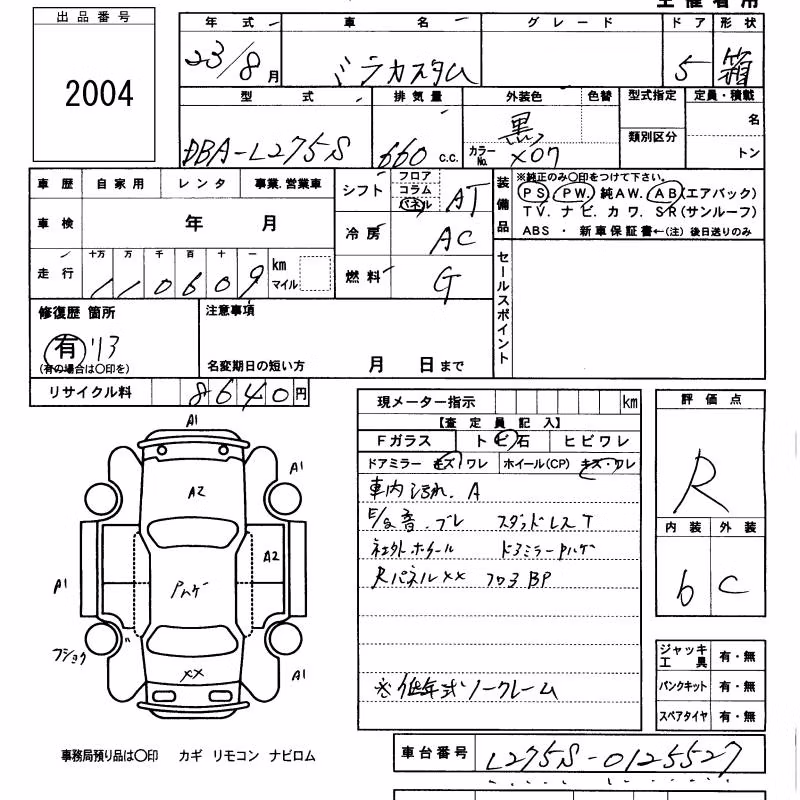 主催者用
出品番号
2004
年式 車名 グレード ドア 形状
23/8月 ミラカスタム 5 箱
型式 排気量 外装色 色替 型式指定 定員・積載
類別区分 名
トン
DBA-L275S 660 c.c. 黒 カラーNo. X07
車歴 自家用 レンタ 事業.営業車
車検 年 月
走行 十万 万 千 百 十 一
110609 km マイル
シフト フロア コラム パネル AT
冷房 AC
燃料 G
装備品
※純正のみ〇印をつけて下さい。
PS. PW. 純AW. AB(エアバック)
TV. ナビ. カワ. SR(サンルーフ)
ABS ・ 新車保証書←(注) 後日送りのみ
セールスポイント
修復歴 箇所
有 '13
(有の場合は〇印を)
注意事項
名変期日の短い方 月 日まで
リサイクル料 8640円
現メーター指示 km
【査定員記入】
Fガラス トビ石 ヒビワレ
ドアミラー キズ ワレ ホイール(CP) キズ・ワレ
車内汚れ. A
E/g音. ブレ スタッドレスT
社外ホイール ドアミラーハゲ
RパネルXX フロヨBP
※低年式ノークレーム
評価点
R
内装 外装
6 C
ジャッキ工具 有・無
パンクキット 有・無
スペアタイヤ 有・無
A1
A2
A1
A2
A1
ハゲ
フショク
XX
A1
事務局預り品は〇印 カギ リモコン ナビロム
車台番号 L275S-0125527